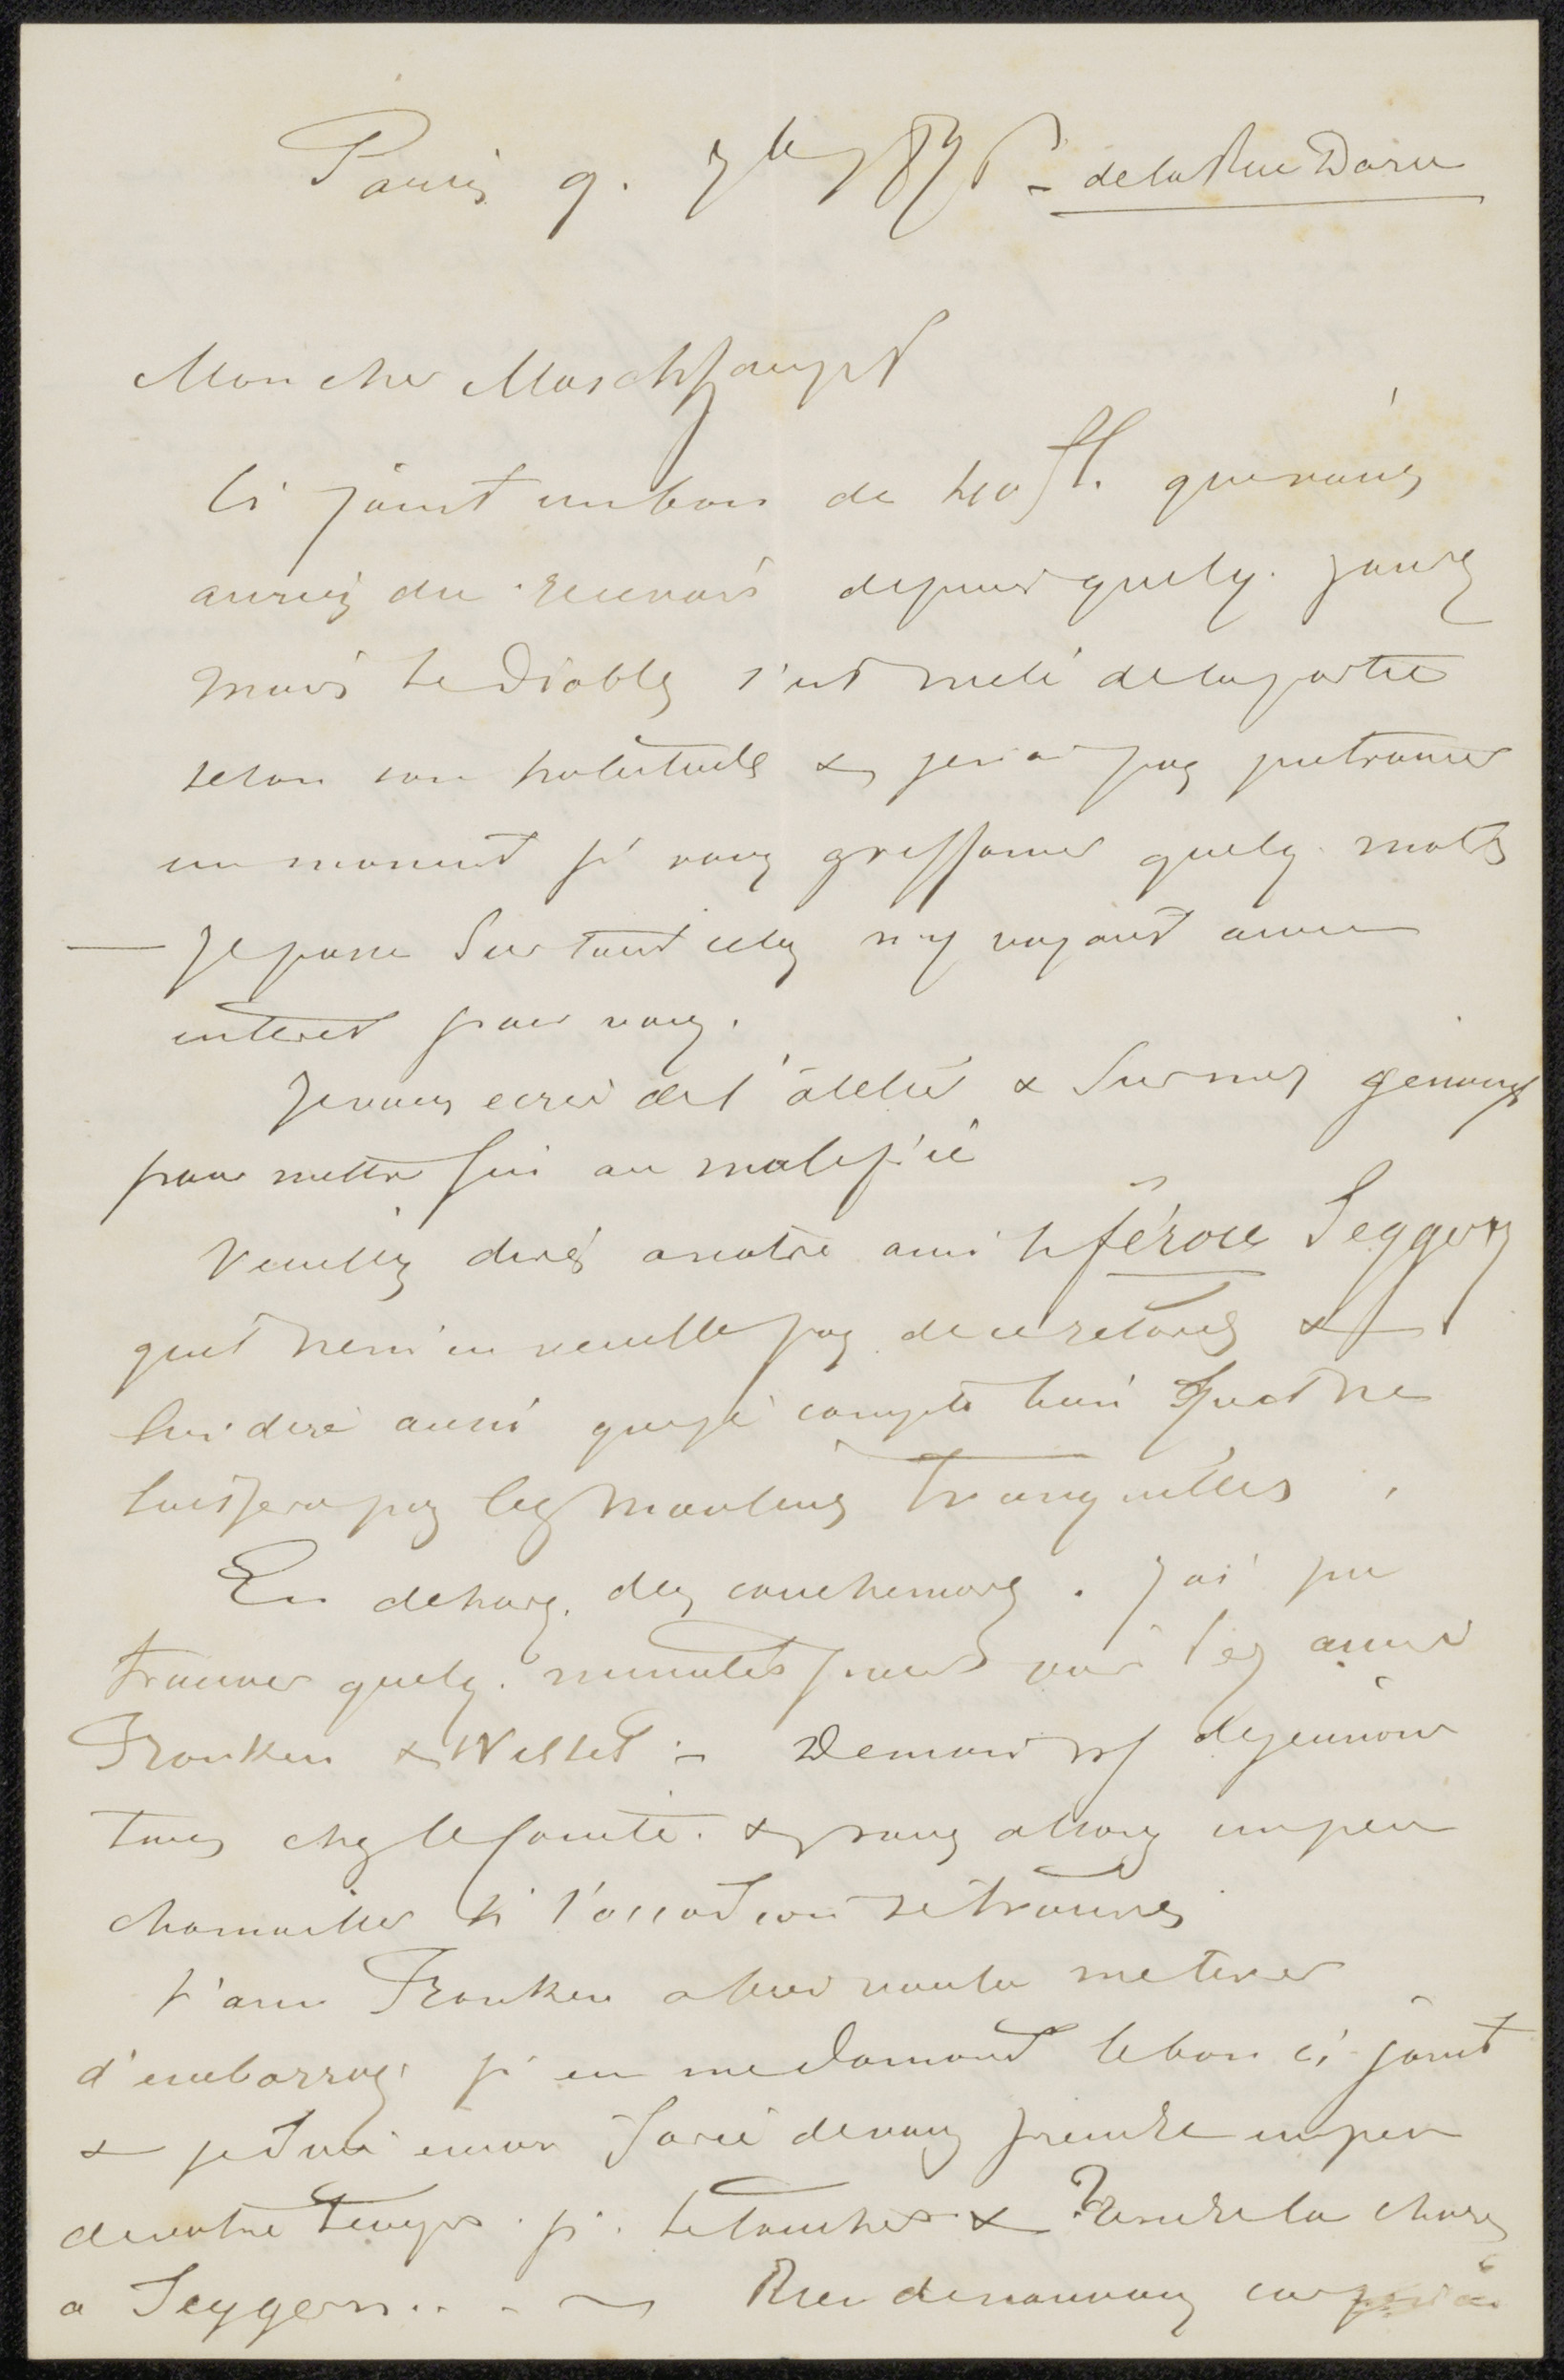 Paris 9. 7br 1876 - de la Rue Daru
Mon cher Maschhaupt
Ci joint un bon de 400 fl. que vous
auriez du recevoir depuis quelq. jours
mais le Diable s'est melé de la partie
selon son habitude & je n'ai pas pu trouver
un moment pr vous griffoner quelq. mots
— Je passe sur tout cela n'y voyant aucun
interet pour vous.
Je vous ecris de l'atelier & sur mes genoux
pour mettre fin au malefice
Veuillez dire a notre ami le féroce Seggern
qu'il ne m'en veuille pas de ce retard &
lui dire aussi que je compte bien qu'il ne
laissera pas les moulins tranquilles,
En dehors des cauchemars. j'ai pu
trouver quelq. minutes pour voir les amis
Franken & Wisset - Demain ns dejeunons
tous chez le Comte. & nous allons un peu
chamailler si l'occasion se trouve
L'ami Franken a bien voulu me tirer
d'embarras pr en me donnant le bon ci-joint
& je vous prendre un peu
de votre temps pr. le toucher & remettre la chose
a Seggern.. . ~ Rien de nouveau car